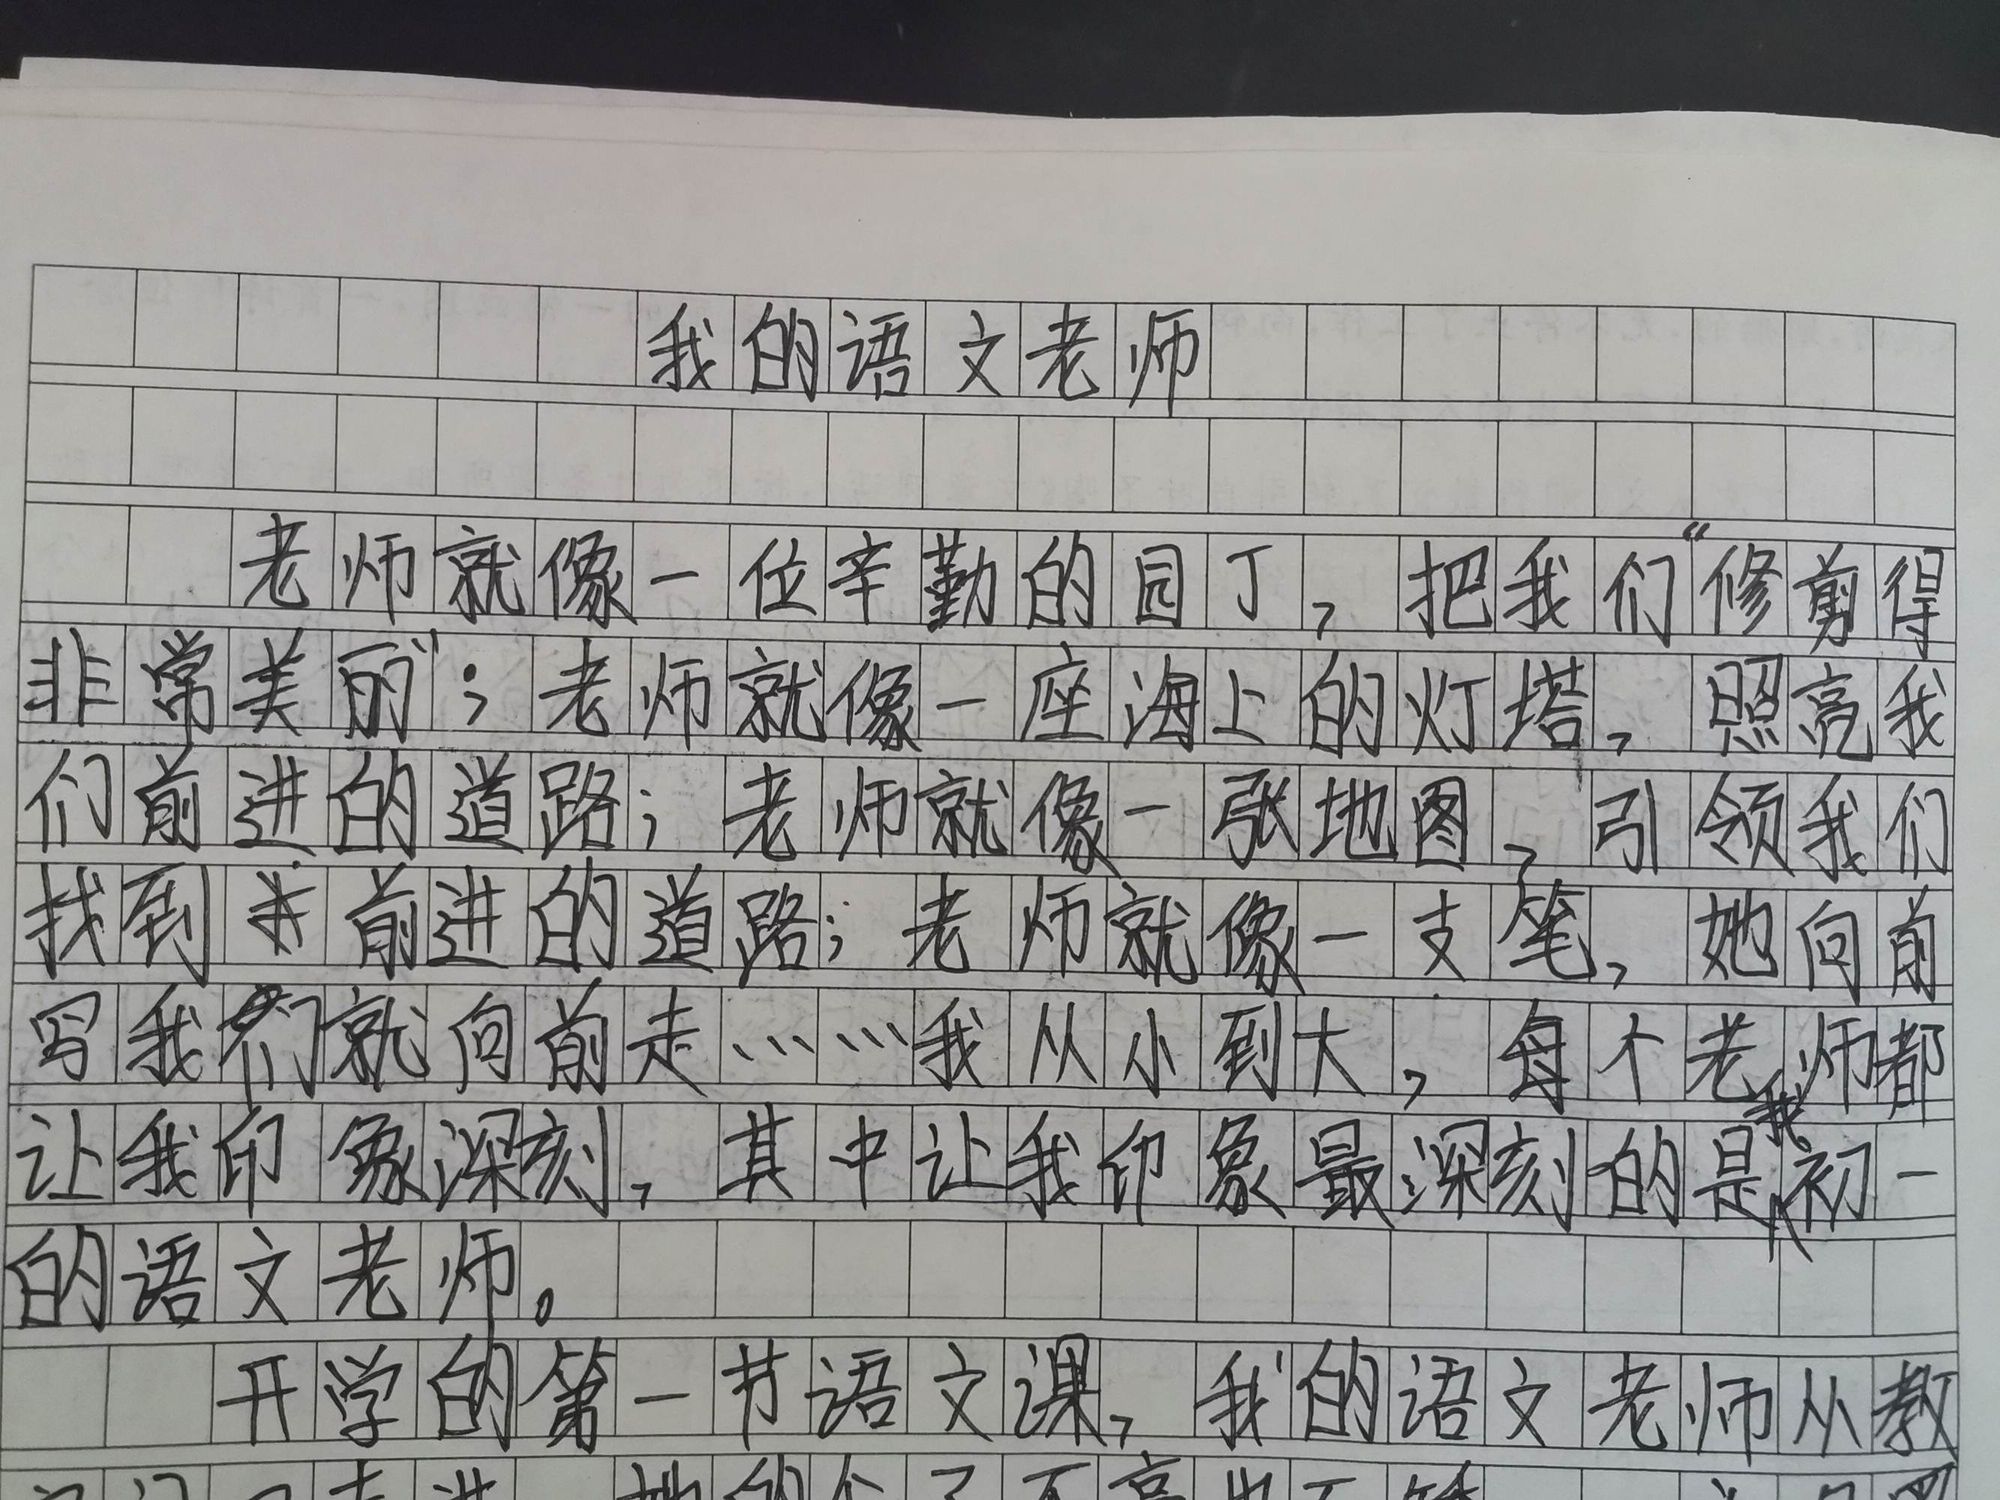 我的语文老师
老师就像一位辛勤的园丁，把我们“修剪得
非常美丽”；老师就像一座海上的灯塔，照亮我
们前进的道路；老师就像一张地图，引领我们
找到前进的道路；老师就像一支笔，她向前
写我们就向前走……我从小到大，每个老师都
让我印象深刻，其中让我印象最深刻的是我初一
的语文老师。
开学的第一节语文课，我的语文老师从教
走进